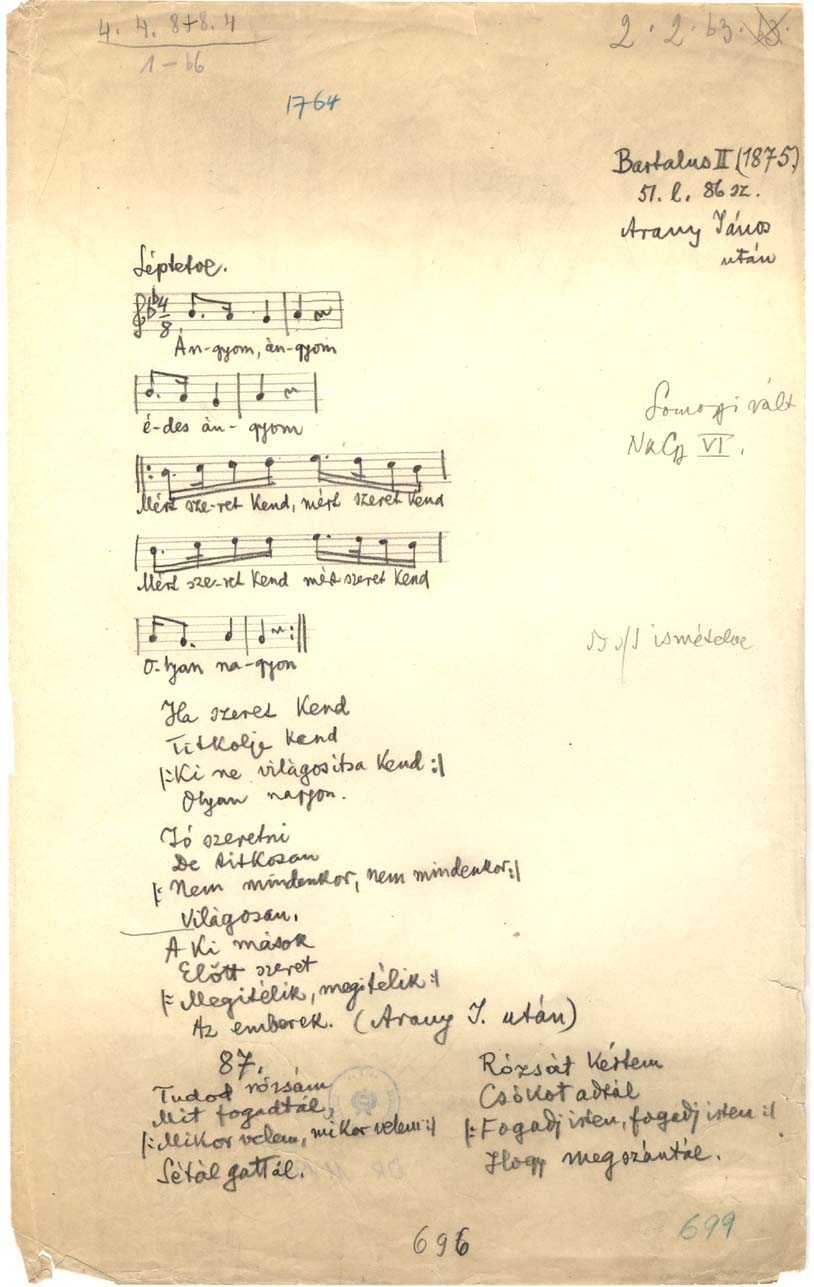 4. 4. 8+8. 4
1-b6
2. 2. b3.
1764
Bartalus II (1875)
51. l. 86 sz.
Arany János
után
Léptetve.
4
8
Án-gyom, án-gyom
é-des án-gyom
Somogyi vált
VI.
Mért sze-ret kend, mért szeret kend
Mért sze-ret kend mért szeret kend
O-lyan na-gyon
ismételve
Ha szeret kend
Titkolje kend
|: Ki ne világosítsa kend :|
Olyan nagyon.
Jó szeretni
De titkosan
|: Nem mindenkor, nem mindenkor :|
Világosan.
A ki mások
Előtt szeret
|: Megitélik, megitélik :|
Az emberek. (Arany J. után)
87.
Tudod rózsám
Mit fogadtál,
|: Mikor velem, mikor velem :|
Sétálgattál.
Rózsát kértem
Csókot adtál
|: Fogadj isten, fogadj isten :|
Hogy megszántál.
696
699